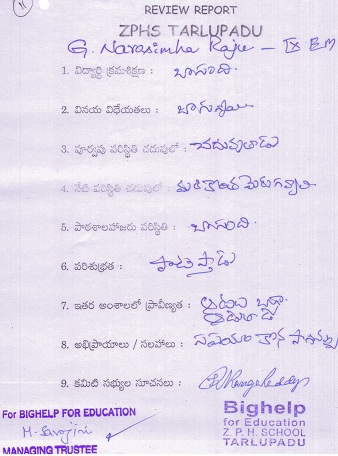 11
REVIEW REPORT
ZPHS TARLUPADU
G. Narasimha Raju – IX EM
1. విద్యార్థి క్రమశిక్షణ : బాగుంది.
2. వినయ విధేయతలు : బాగున్నాయి
3. పూర్వపు పరిస్థితి చదువులో : చదువుతాడు
4. నేటి పరిస్థితి చదువులో :
5. పాఠశాలహాజరు పరిస్థితి : బాగుంది.
6. పరిశుభ్రత : పాటిస్తాడు
7. ఇతర అంశాలలో ప్రావీణ్యత : ఆటలు బాగా
ఆడుతాడు
8. అభిప్రాయాలు / సలహాలు :
9. కమిటి సభ్యుల సూచనలు :
For BIGHELP FOR EDUCATION
M. Sarojini
MANAGING TRUSTEE
Bighelp
for Education
Z. P. H. SCHOOL
TARLUPADU